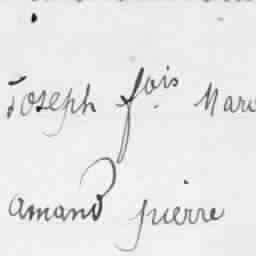 Joseph fois Marc
amand pierre